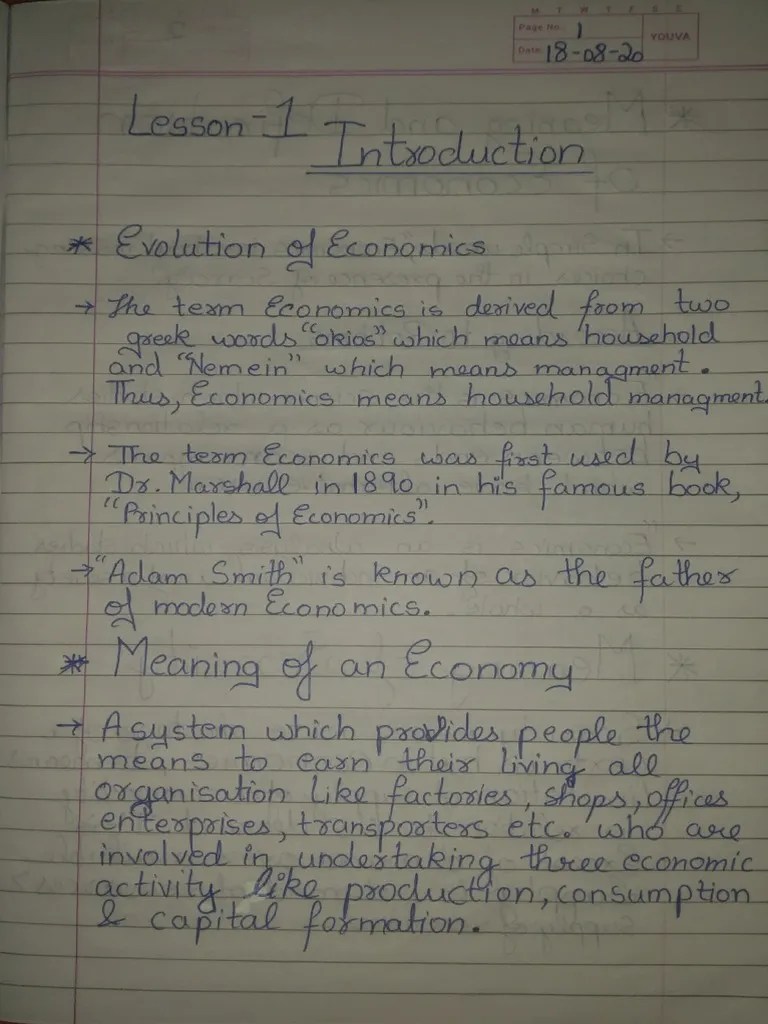 M T W T F S S
Page No.: 1
YOUVA
Date: 18-08-20
Lesson-1
Introduction
* Evolution of Economics
→ The term Economics is derived from two
greek words "okios" which means household
and "Nemein" which means managment.
Thus, Economics means household managment.
→ The term Economics was first used by
Dr. Marshall in 1890 in his famous book,
"Principles of Economics".
→ "Adam Smith" is known as the father
of modern Economics.
* Meaning of an Economy
→ A system which provides people the
means to earn their living all
organisation like factories, shops, offices
enterprises, transporters etc. who are
involved in undertaking three economic
activity like production, consumption
& capital formation.